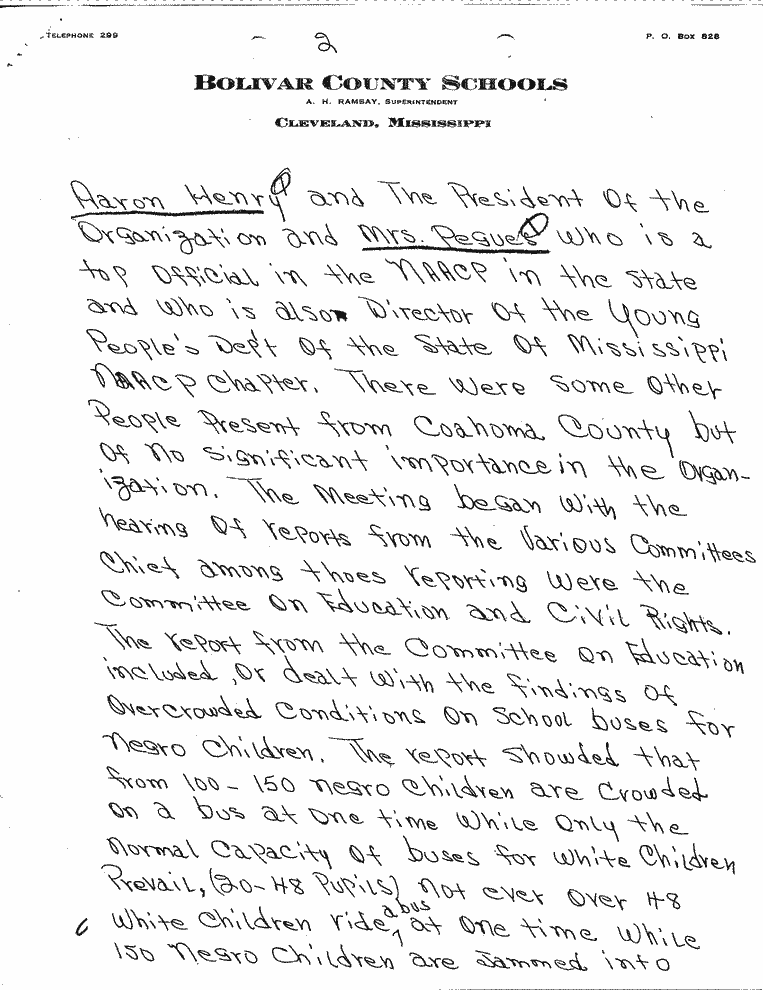 TELEPHONE 299
2
P. O. BOX 828
BOLIVAR COUNTY SCHOOLS
A. H. RAMSAY, SUPERINTENDENT
CLEVELAND, MISSISSIPPI
Aaron Henry and The President Of the
Organization and Mrs. Pegues Who is a
top Official in the NAACP in the State
and Who is also Director Of the Young
People's Dep't Of the State Of Mississippi
NAACP Chapter. There Were Some Other
People Present from Coahoma County but
Of No Significant importance in the Organ-
ization. The Meeting began With the
hearing Of reports from the Various Committees
Chief among thoes reporting Were the
Committee On Education and Civil Rights.
The report from the Committee On Education
included, Or dealt With the findings Of
Overcrowded Conditions On School buses for
Negro Children. The report Showded that
from 100-150 negro Children are Crowded
On a bus at One time While Only the
Normal Capacity Of buses for White Children
Prevail, (20-48 Pupils) not ever Over 48
White Children ride a bus at One time While
150 Negro Children are Jammed into